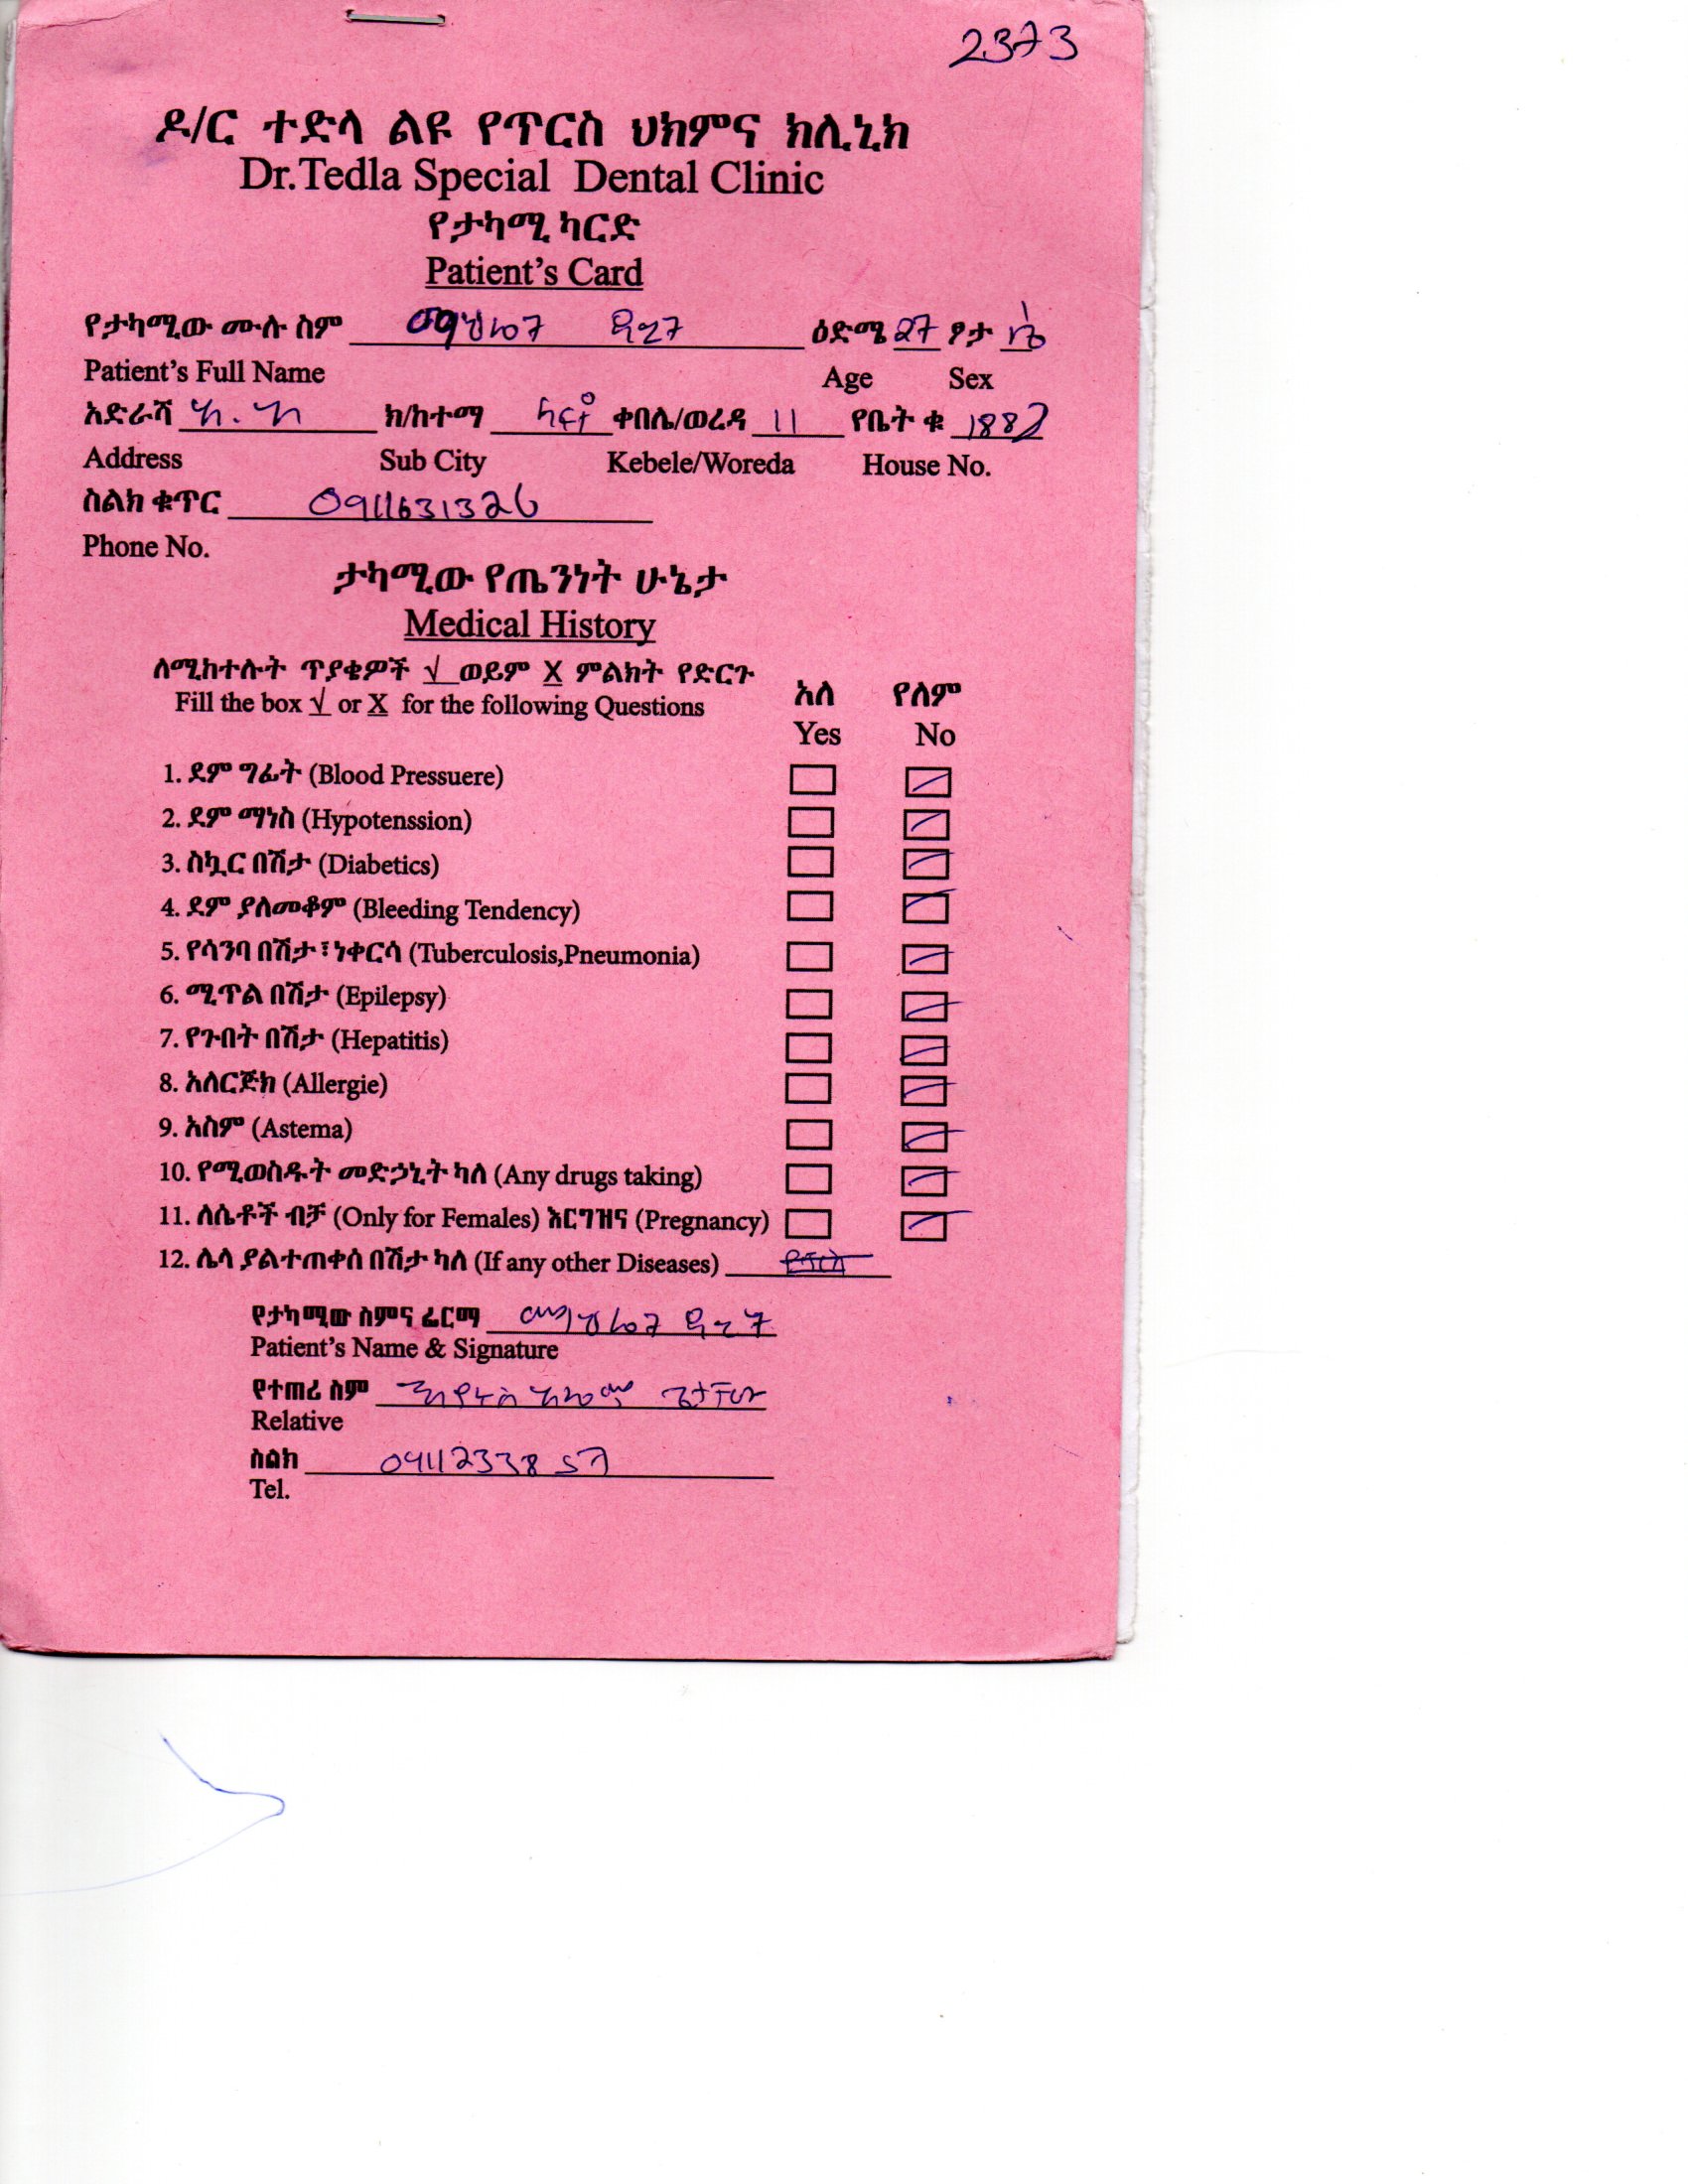 2373
ዶ/ር ተድላ ልዩ የጥርስ ህክምና ክሊኒክ
Dr.Tedla Special Dental Clinic
የታካሚ ካርድ
Patient's Card
የታካሚው ሙሉ ስም ዕድሜ 27 ፆታ
Patient's Full Name Age Sex
አድራሻ አ.አ ክ/ከተማ ቀበሌ/ወረዳ 11 የቤት ቁ 1882
Address Sub City Kebele/Woreda House No.
ስልክ ቁጥር 0911631326
Phone No.
ታካሚው የጤንነት ሁኔታ
Medical History
ለሚከተሉት ጥያቄዎች √ ወይም X ምልክት የድርጉ
Fill the box √ or X for the following Questions
አለ የለም
Yes No
1. ደም ግፊት (Blood Pressuere)
2. ደም ማነስ (Hypotenssion)
3. ስኳር በሽታ (Diabetics)
4. ደም ያለመቆም (Bleeding Tendency)
5. የሳንባ በሽታ፣ነቀርሳ (Tuberculosis,Pneumonia)
6. ሚጥል በሽታ (Epilepsy)
7. የጉበት በሽታ (Hepatitis)
8. አለርጅክ (Allergie)
9. አስም (Astema)
10. የሚወስዱት መድኃኒት ካለ (Any drugs taking)
11. ለሴቶች ብቻ (Only for Females) እርግዝና (Pregnancy)
12. ሌላ ያልተጠቀሰ በሽታ ካለ (If any other Diseases)
የታካሚው ስምና ፊርማ
Patient's Name & Signature
የተጠሪ ስም
Relative
ስልክ 0911233857
Tel.